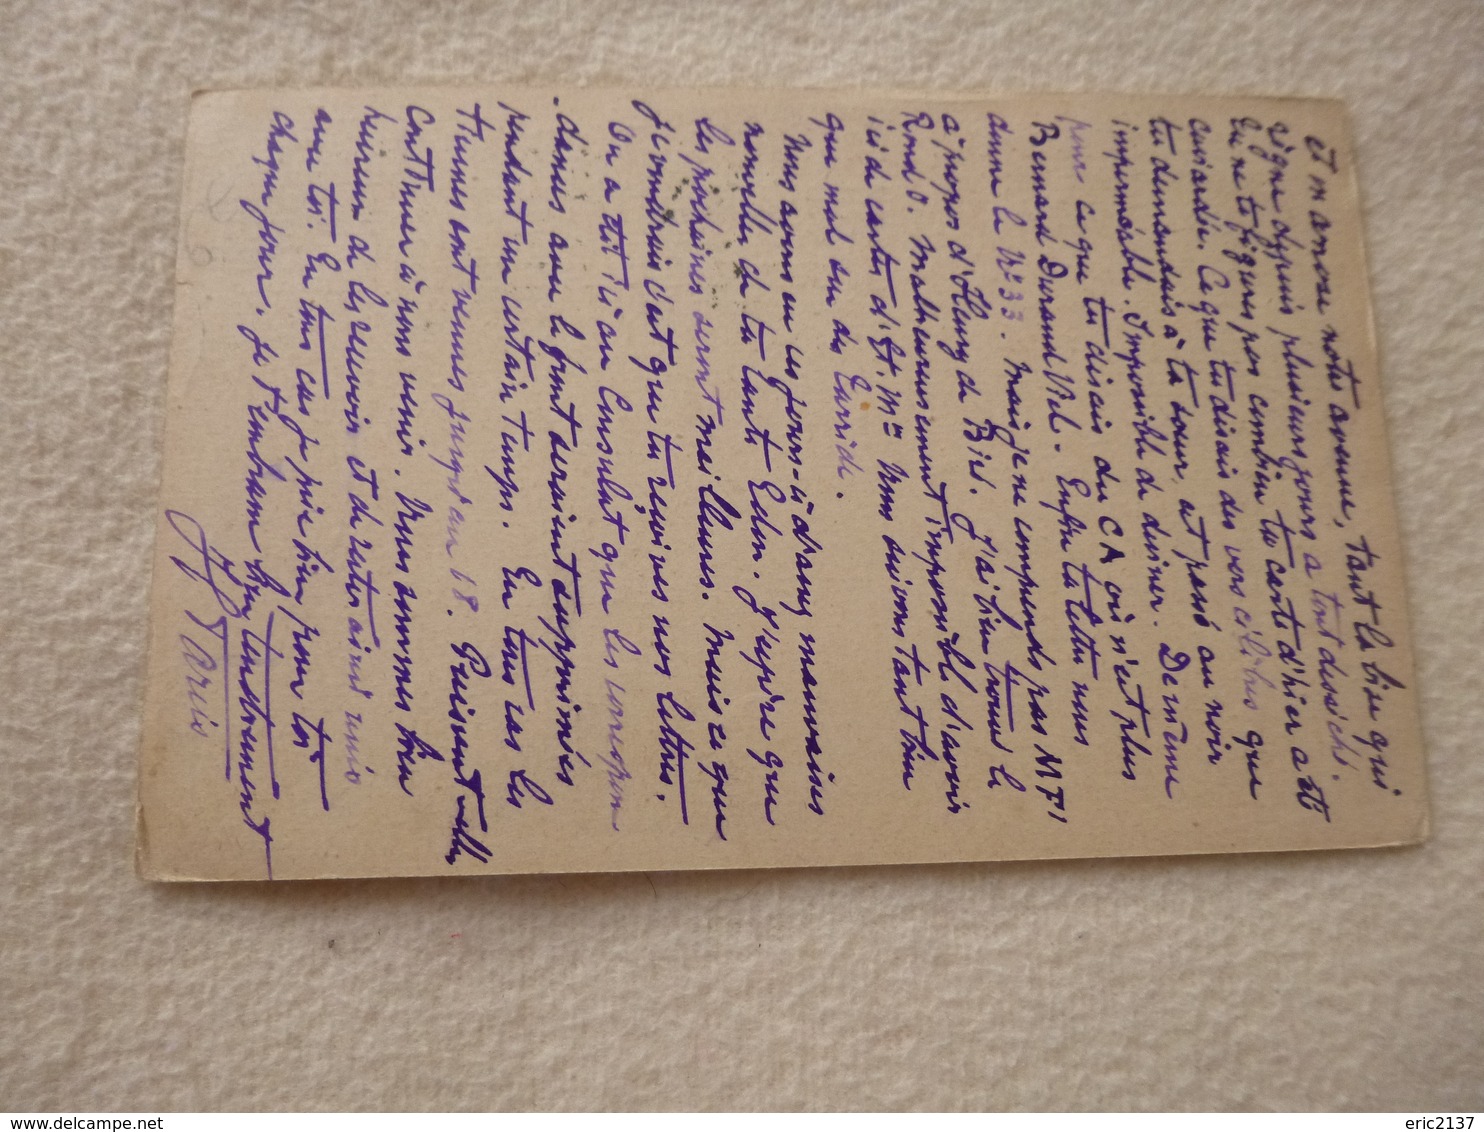 et m'arrose notre avenue, tant la bise qui
règne depuis plusieurs jours a tout desséché.
Tu ne te figures pas combien ta carte d'hier a été
Ce que tu disais des vers célèbres que
tu demandais à ta sœur, est passé au noir
imperméable. Impossible de deviner. De même
pour ce que tu disais du CA où n'est plus
Bernard Durand Viel. Enfin ta lettre nous
donne le N° 33. Mais je ne comprends pas MFI
à propos d'Henry de Bis. J'ai bien trouvé le
Rond O. Malheureusement impossible d'avoir
ici de cartes d'Et. M. Nous suivons tant bien
que mal sur des
Nous avons eu ces jours-ci d'assez mauvaises
nouvelles de ta tante Edm. J'espère que
les prochaines seront meilleures. Mais ce que
je voudrais c'est que tu reçoives nos lettres.
On a dit ici au Consulat que les correspon
dances avec le front seraient supprimées
pendant un certain temps. En tous cas les
tiennes sont venues jusqu'au 18. Puissent elles
continuer à nous venir. Nous sommes bien
heureux de les recevoir et de rester ainsi unis
avec toi. En tous cas je prie bien pour toi
chaque jour. Je t'embrasse bien tendrement
eric2137